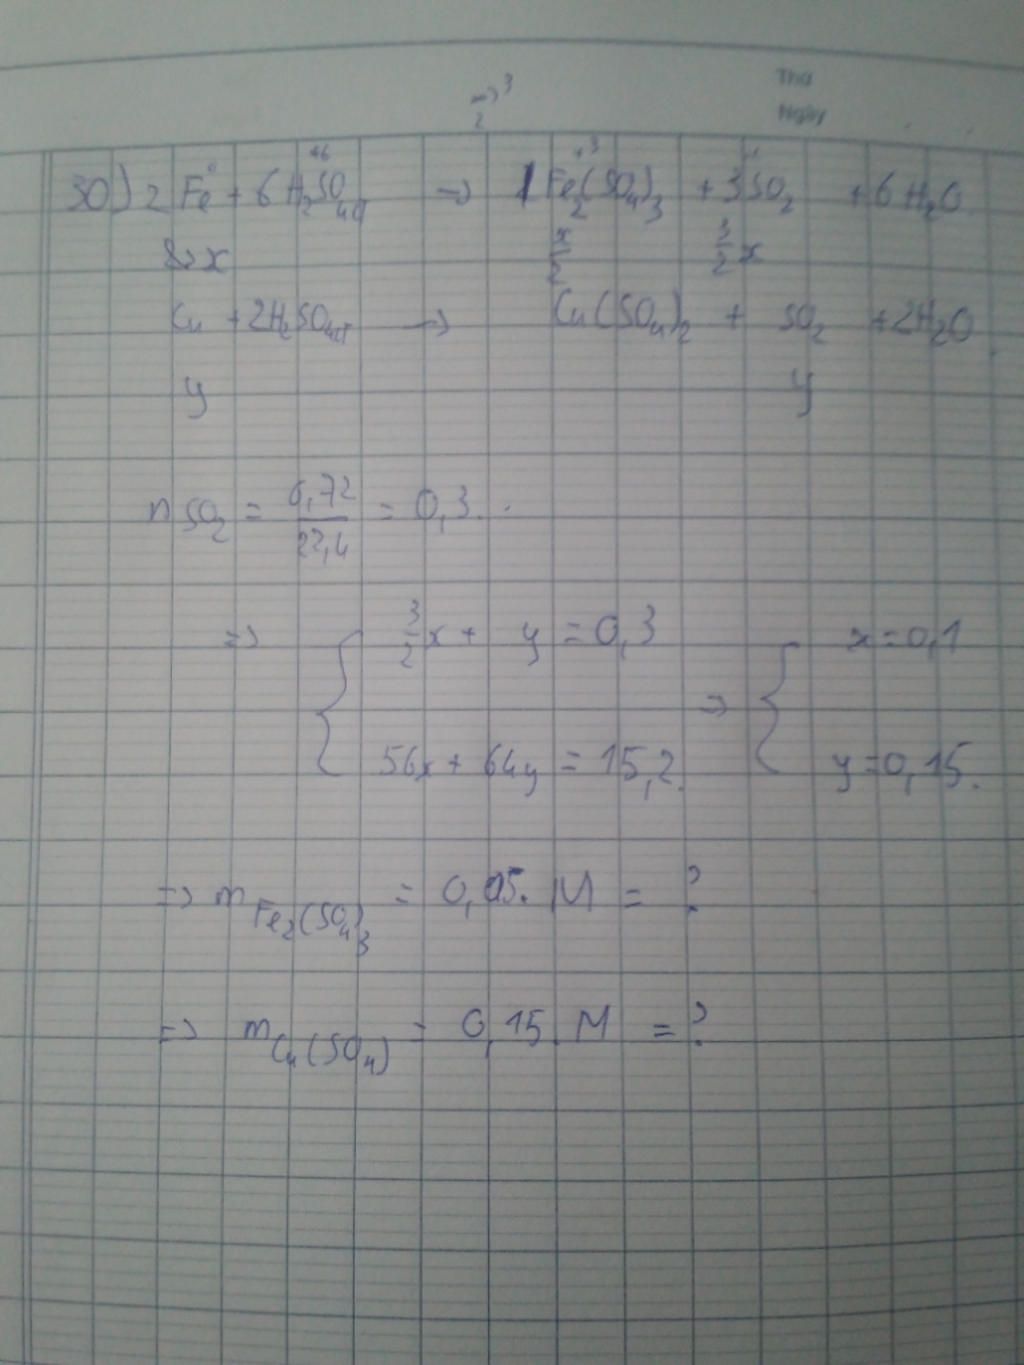 Thứ
Ngày
=> 3
2
0 +6 +3
30) 2 Fe + 6 H2SO4đ => 1 Fe2(SO4)3 + 3SO2 + 6 H2O
x x/2 3/2 x
Cu + 2H2SO4đ => Cu(SO4)2 + SO2 + 2H2O
y y
nSO2 = 6,72/22,4 = 0,3.
=> { 3/2 x + y = 0,3 => { x = 0,1
56x + 64y = 15,2. y = 0,15.
=> m Fe2(SO4)3 = 0,05. M = ?
=> m Cu(SO4) = 0,15. M = ?